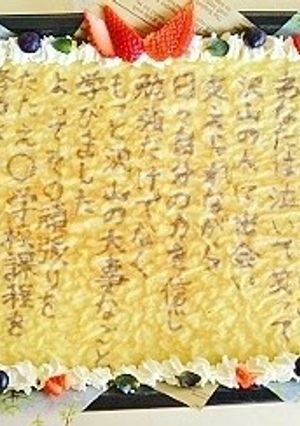 あなたは泣いて笑って
沢山の人に出会い
支えられながら
日々自分の力を信じ
勉強だけでなく
もっと沢山の大事なことを
学びました
よってその頑張りを
たたえ〇学校課程を